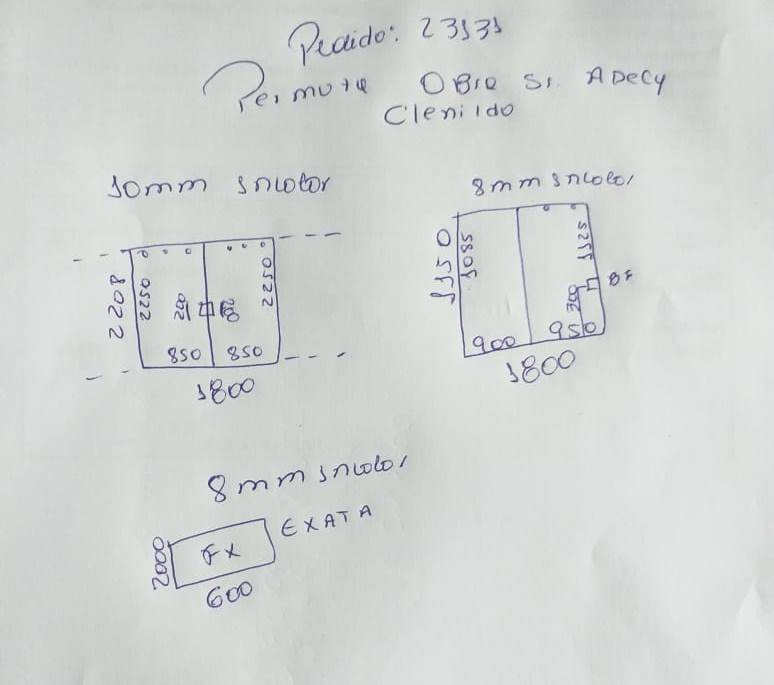 Pedido: 23131
Permuta Obra Sr. ADecy
Clenildo
10mm Incolor
8mm Incolor
2208
2250
2250
200
850
850
1800
900
950
BF
1800
8mm Incolor
FX
EXATA
2000
600